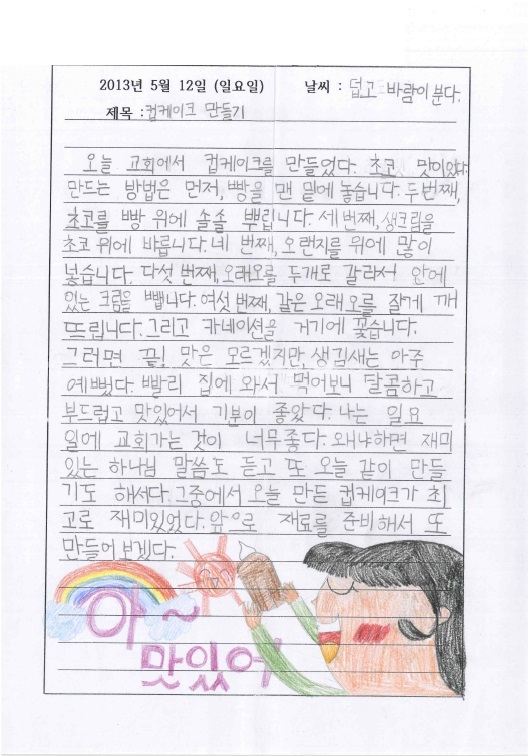 2013년 5월 12일 (일요일) 날씨 : 덥고 바람이 분다.
제목 : 컵케이크 만들기
오늘 교회에서 컵케이크를 만들었다. 초코 맛이었다.
만드는 방법은 먼저, 빵을 맨 밑에 놓습니다. 두번째,
초코를 빵 위에 솔솔 뿌립니다. 세 번째, 생크림을
초코 위에 바릅니다. 네 번째, 오랜지를 위에 많이
놓습니다. 다섯 번째, 오래오를 두개로 갈라서 안에
있는 크림을 뺍니다. 여섯 번째, 같은 오래오를 잘게 깨
뜨립니다. 그리고 카네이션을 거기에 꽃습니다.
그러면 끝! 맛은 모르겠지만, 생김새는 아주
예뻤다. 빨리 집에 와서 먹어보니 달콤하고
부드럽고 맛있어서 기분이 좋았다. 나는 일요
일에 교회가는 것이 너무좋다. 왜냐하면 재미
있는 하나님 말씀도 듣고 또 오늘 같이 만들
기도 해서다. 그중에서 오늘 만든 컵케이크가 최
고로 재미있었다. 앞으로 재료를 준비해서 또
만들어 보겠다.
아~
맛있어